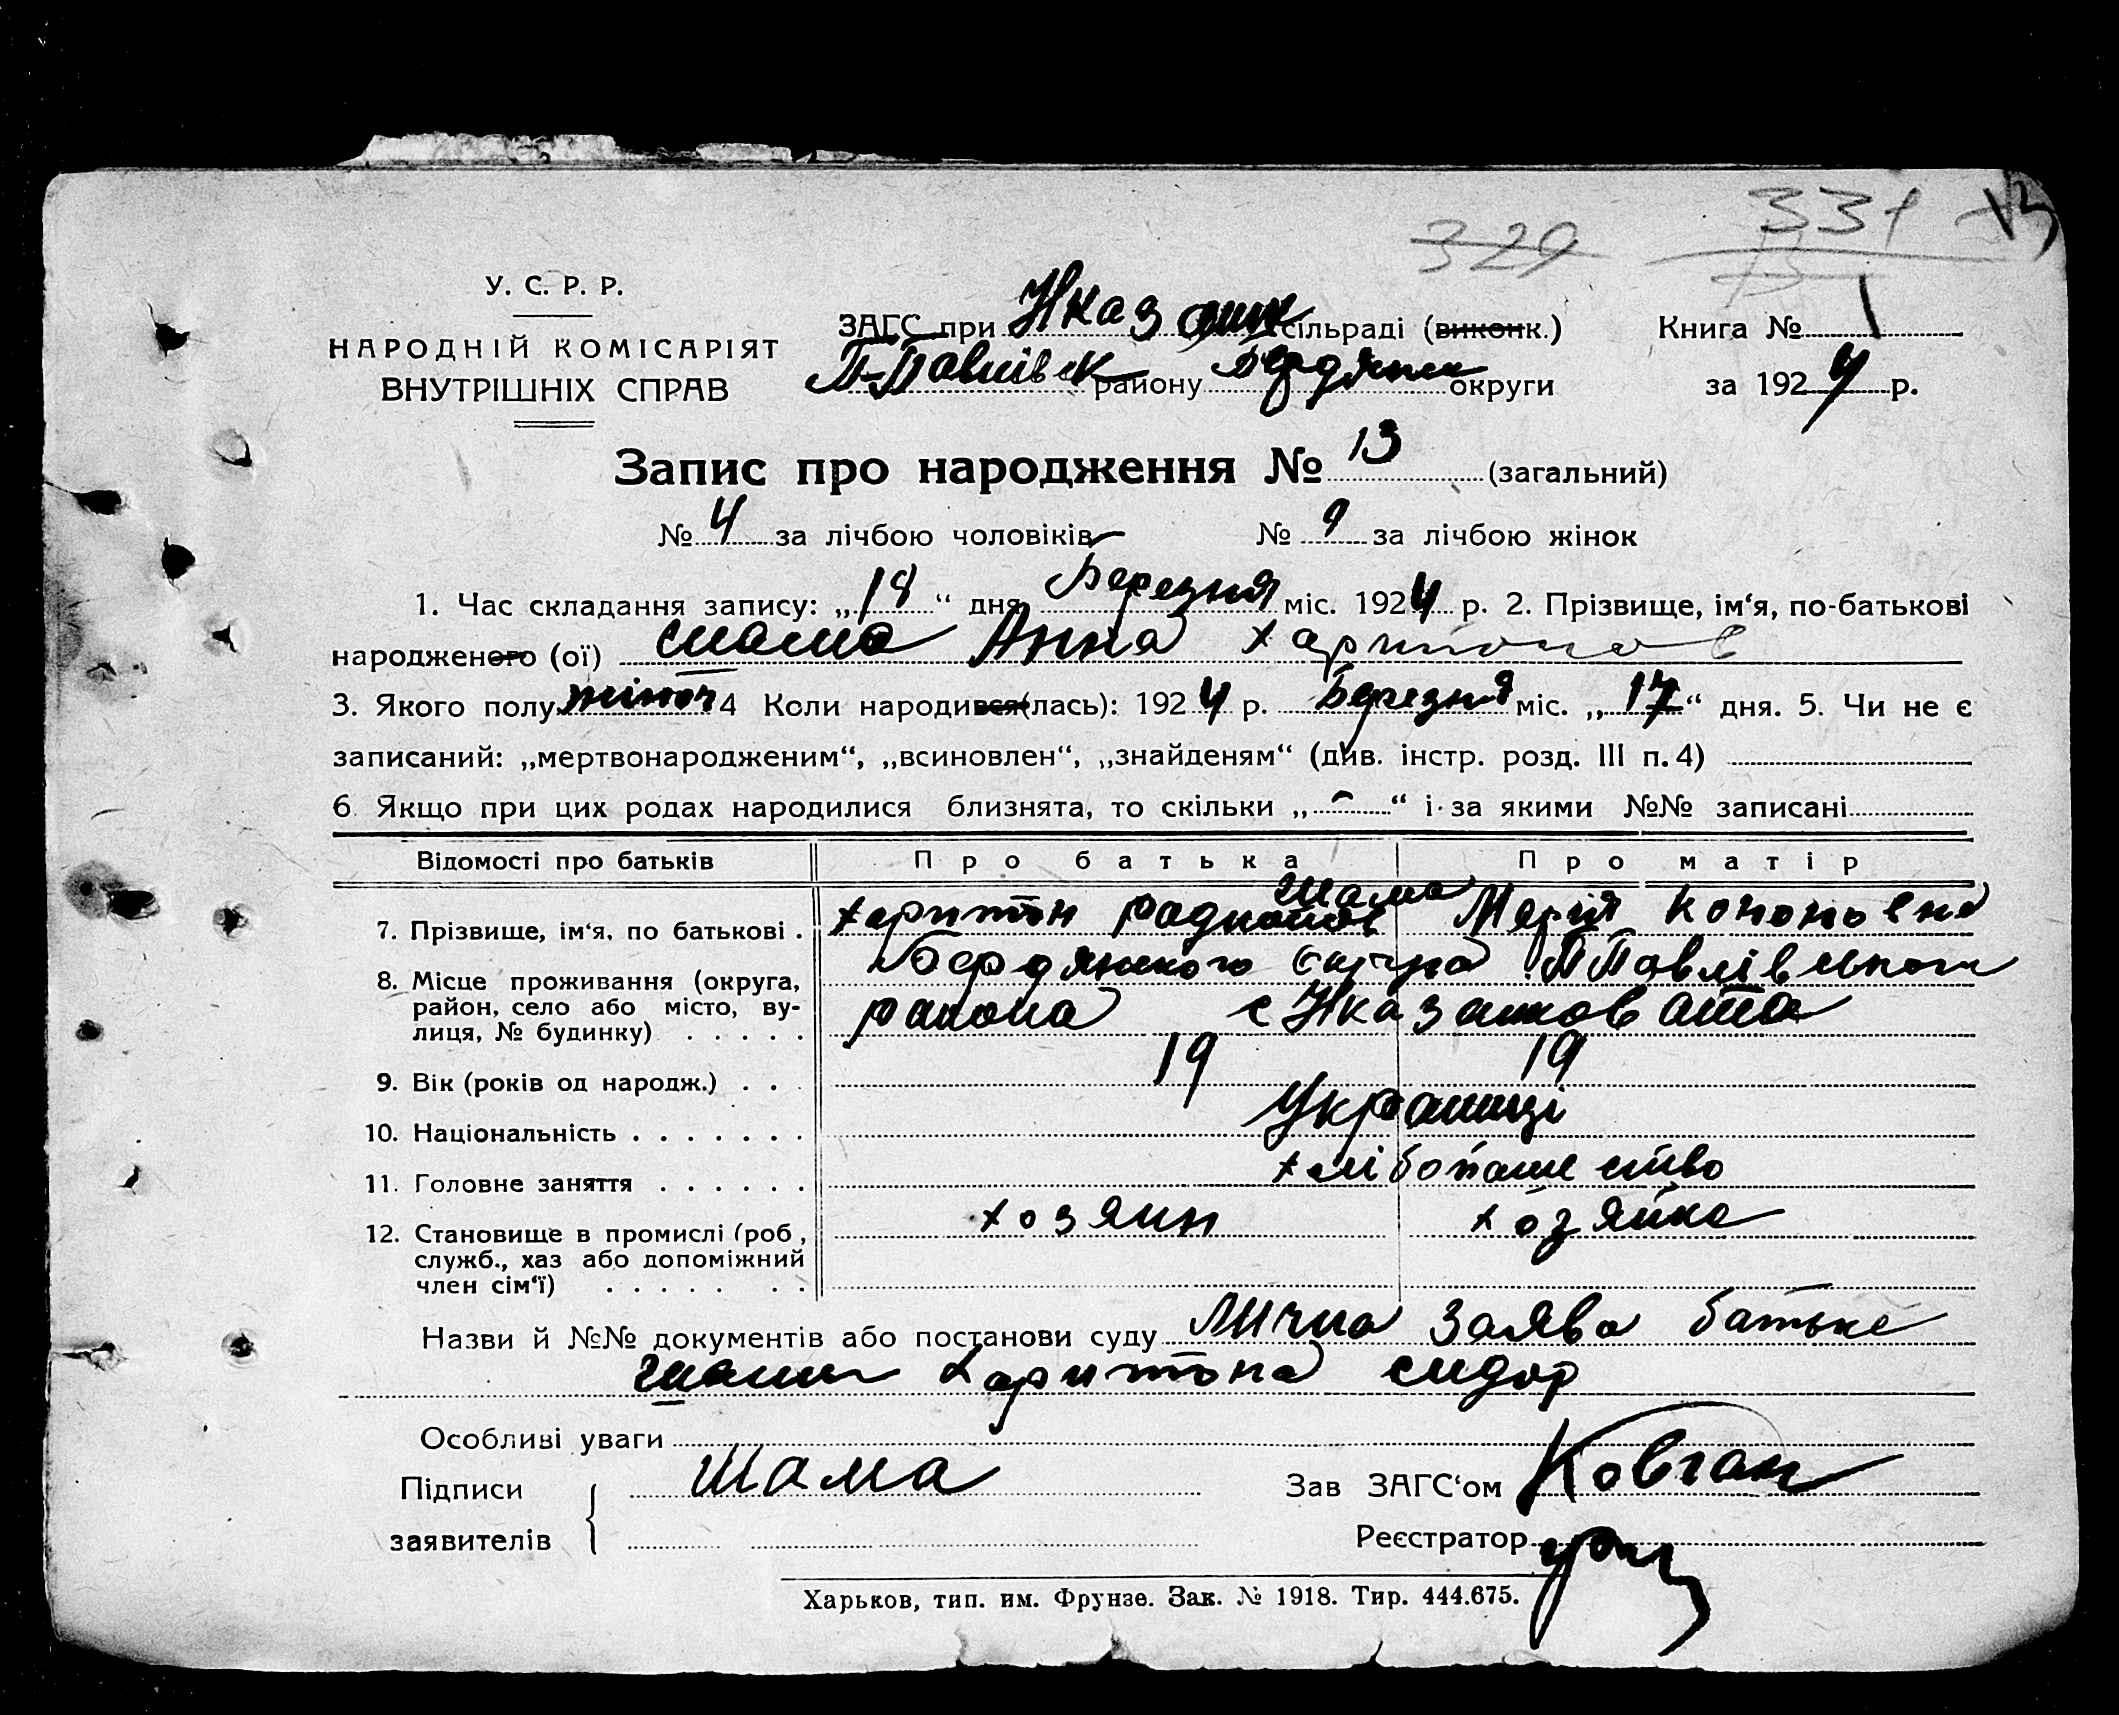 329 331
У. С. Р. Р.
НАРОДНІЙ КОМІСАРІЯТ
ВНУТРІШНІХ СПРАВ
ЗАГС при сільраді (виконк.) Книга № 1
П-Павлівск району Бердянск округи за 1924 р.
Запис про народження № 13 (загальний)
№ 4 за лічбою чоловіків № 9 за лічбою жінок
1. Час складання запису: „18“ дня Березня міс. 1924 р. 2. Прізвище, ім‘я, по-батькові
народженого (ої) Шама Анна Харитонов
3. Якого полу жіноч 4 Коли народився(лась): 1924 р. Березня міс. „17“ дня. 5. Чи не є
записаний: „мертвонародженим“, „всиновлен“, „знайденям“ (див. інстр. розд. III п. 4)
6 Якщо при цих родах народилися близнята, то скільки „-“ і за якими №№ записані
Відомості про батьків Про батька Про матір
7. Прізвище, ім‘я, по батькові . Харитон Шама Мерія Кононовна
8. Місце проживання (округа, Бердянского П Павлівского
район, село або місто, ву- района с Нказанковата
лиця, № будинку) . . . . .
9. Вік (років од народж.) . . . 19 19
10. Національність . . . . . . . Украинці
11. Головне заняття . . . . . . хлібопашество
12. Становище в промислі (роб, хозяин хозяйка
служб., хаз або допоміжний
член сім‘ї) . . . . . . .
Назви й №№ документів або постанови суду Лична заява батька
Шами Харитона Сидор
Особливі уваги
Підписи Шама Зав ЗАГС‘ом Ковган
заявителів Реєстратор
Харьков, тип. им. Фрунзе. Зак. № 1918. Тир. 444.675.